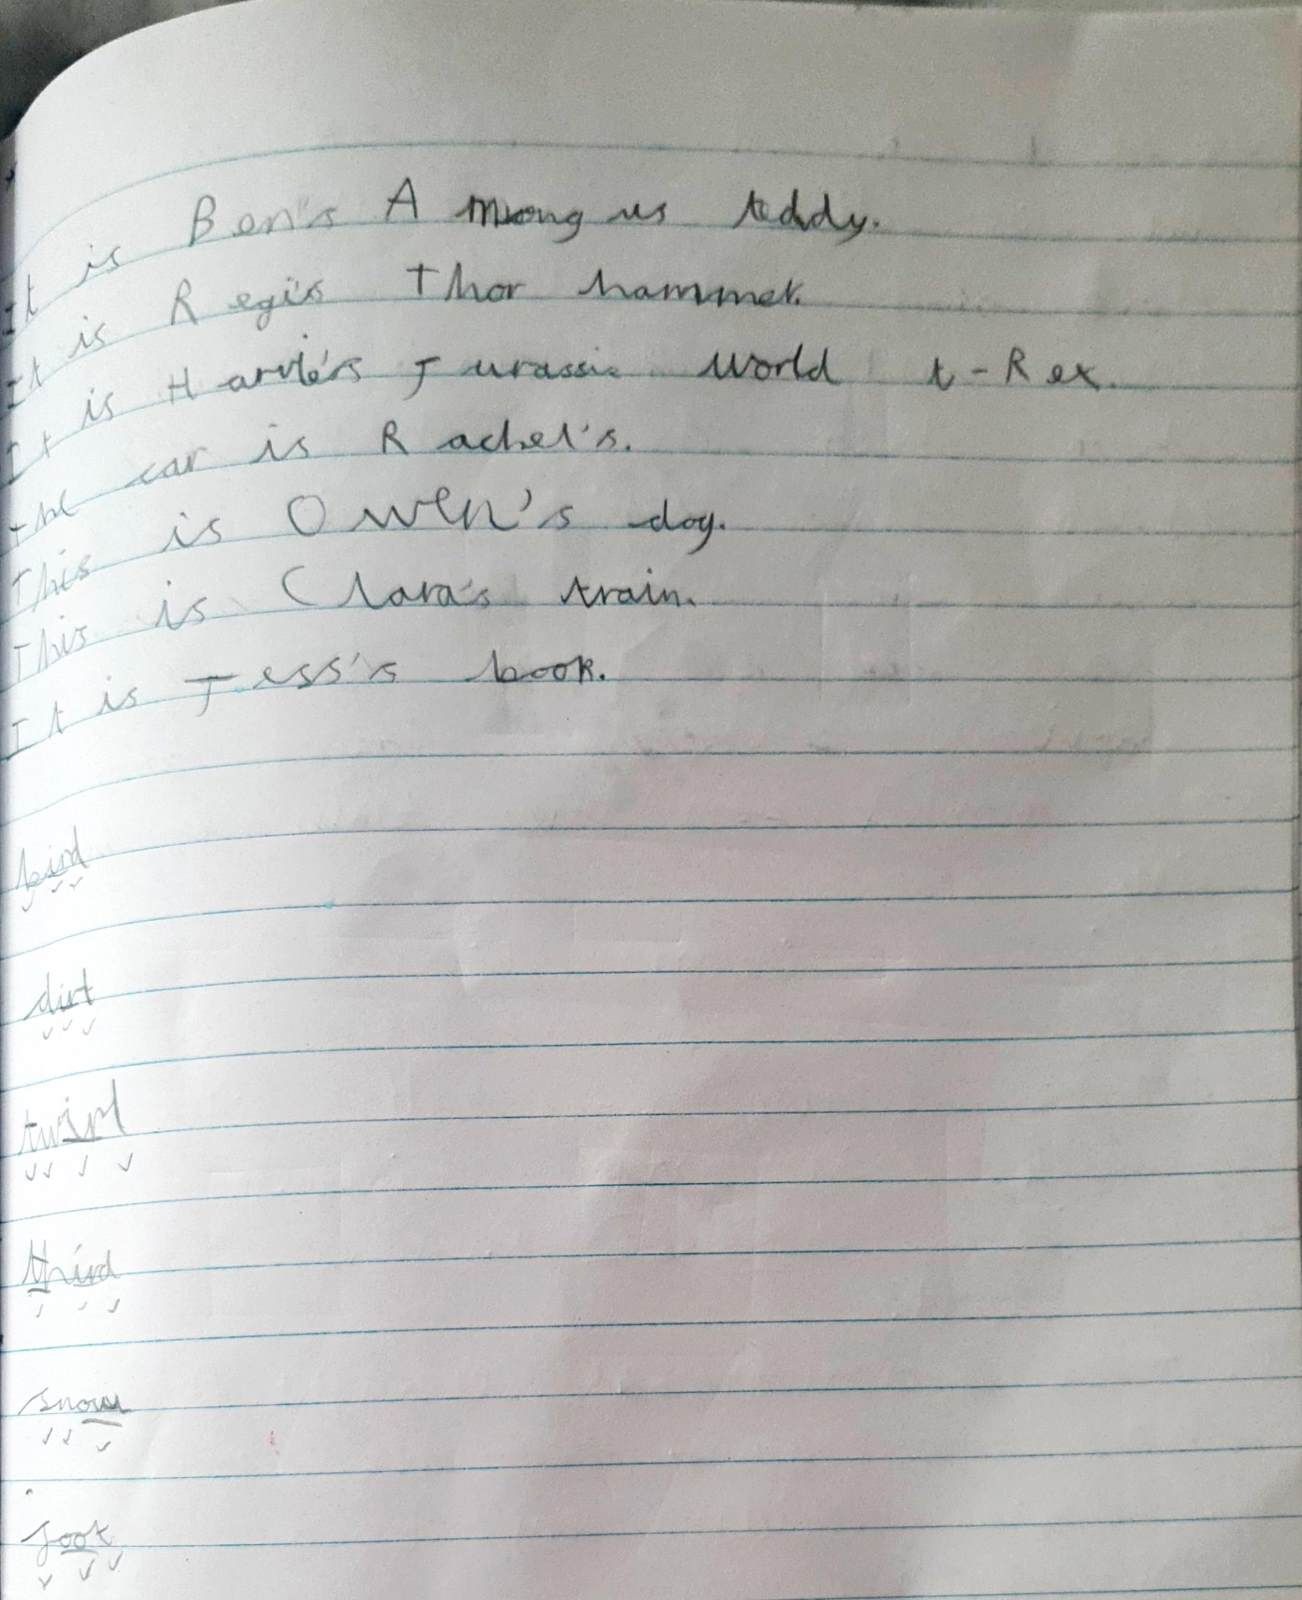 It is Ben's Among us teddy.
It is Regi's Thor hammer.
It is Harvie's Jurassic World t-Rex.
The car is Rachel's.
This is Owen's dog.
This is Clara's train.
It is Jess's book.
bird
dirt
twirl
third
snow
foot